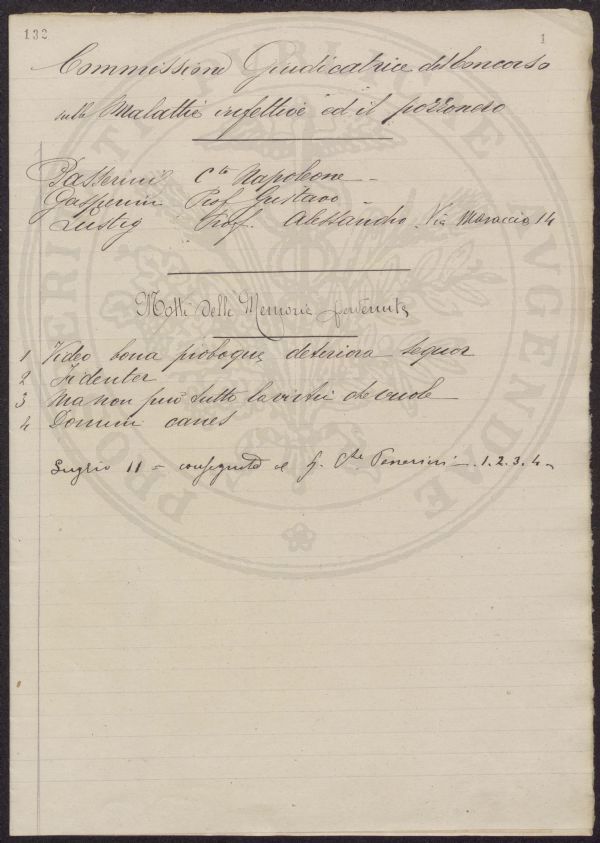 132
1
Commissione Giudicatrice del Concorso
sulle Malattie infettive ed il pozzo nero
Passerini Cte Napoleone -
Gasperini Prof Gustavo -
Lustig Prof. Alessandro. Via 14
Motti delle Memorie pervenute
1 Video bona proboque deteriora sequor
2 Fidenter
3 Ma non può tutto la virtù che vuole
4 Domini canes
Luglio 11 = al S. Cte Passerini - 1. 2. 3. 4 -